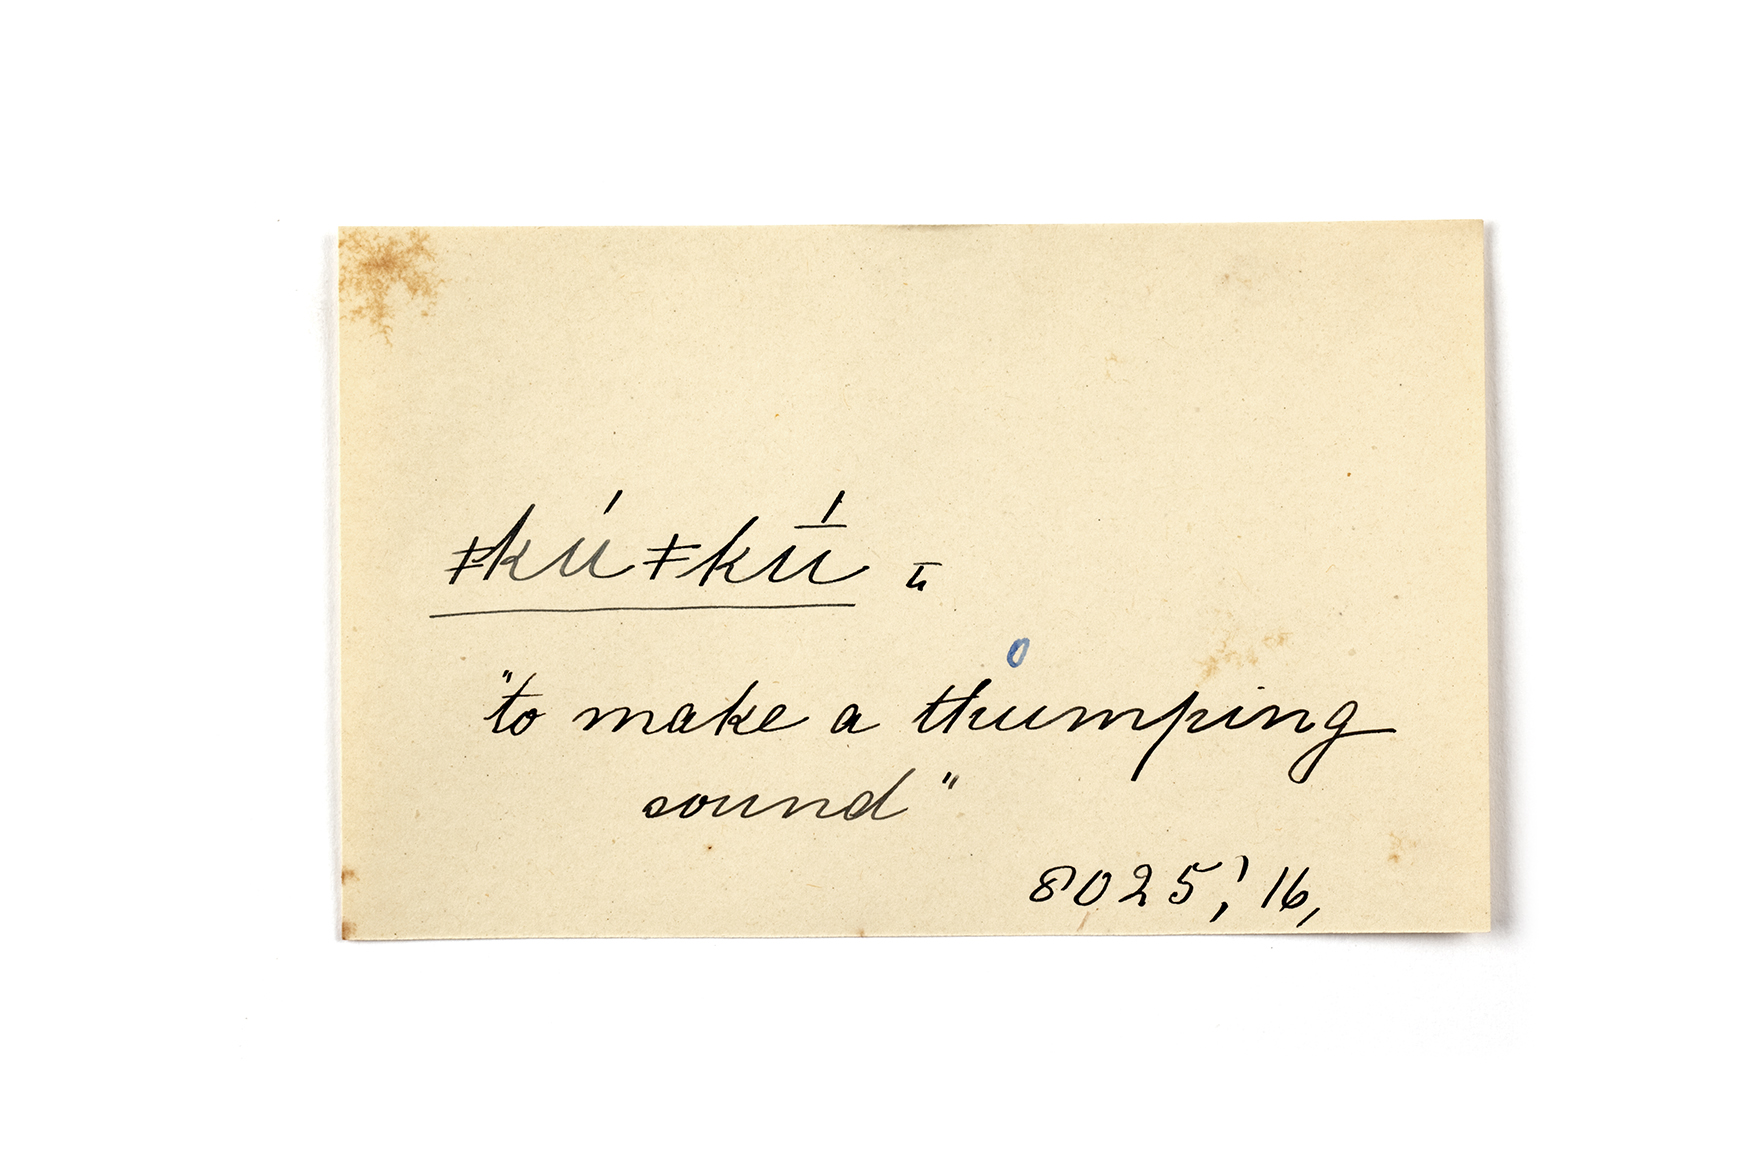 ǂkú ǂkū́ ɪɪ
"to make a thumping
sound"
8025,' 16,